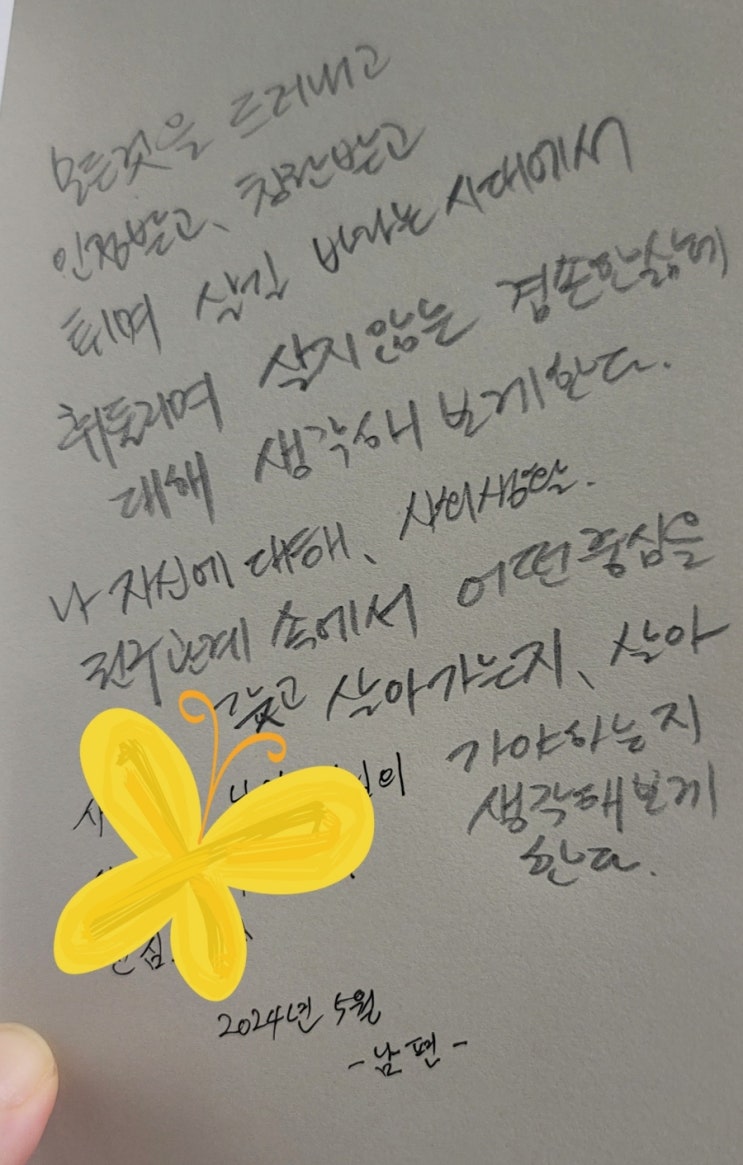 모든것을 드러내고
인정받고, 칭찬받고
튀며 살길 바라는 시대에서
휘둘리며 살지않는 겸손한삶에
대해 생각해 보게한다.
나 자신에 대해, 사회생활.
친구관계 속에서 어떤중심을
갖고 살아가는지, 살아
가야하는지
생각해보게
한다.
2024년 5월
-남편-